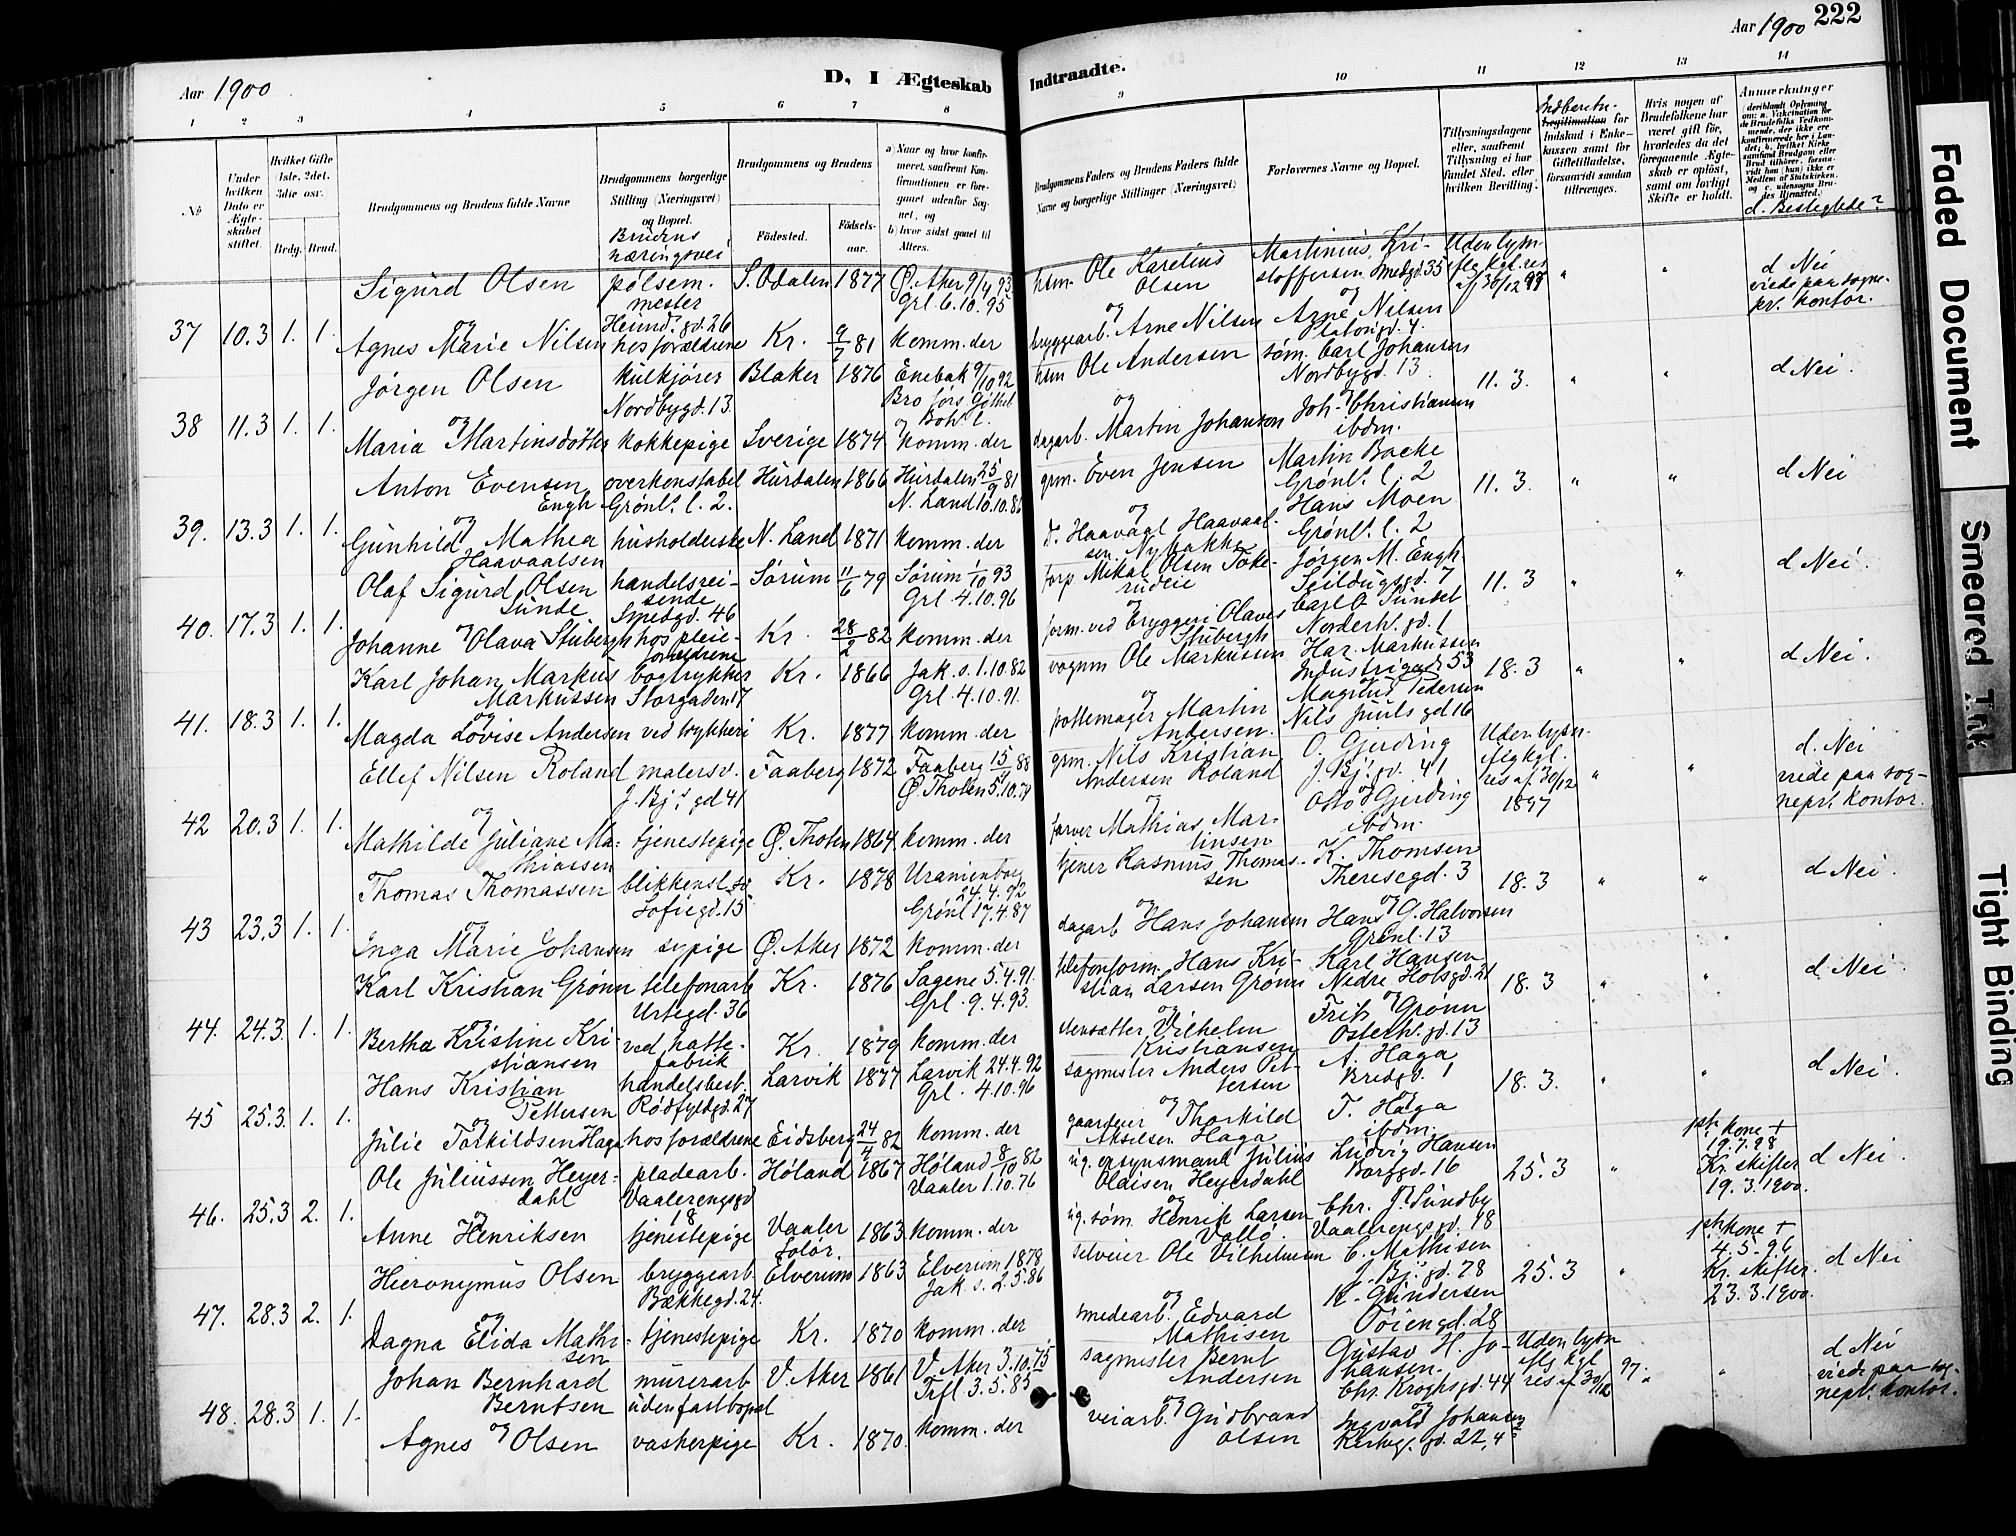 222
Aar 1900
D, I Ægteskab
Indtraadte.
Aar 1900
1 2 3 4 5 6 7 8
9 10 11 12 13 14
No
Under hvilken Dato er Ægteskabet stiftet.
Hvilket Gifte (1ste, 2det, 3die osv.
Brdg. Brud.
Brudgommens og Brudens fulde Navne
Brudgommens borgerlige Stilling (Næringsvei) og Bopæl.
Brudens næringsvei
Brudgommens og Brudens
Fødested.
Fødselsaar.
a) Naar og hvor konfirmeret, saafremt Konfirmationen er foregaaet udenfor Sognet, og
b) hvor sidst gaaet til Alters.
Brudgommens Faders og Brudens Faders fulde Navne og borgerlige Stillinger (Næringsvei)
Forlovernes Navne og Bopæl.
Tillysningsdagene eller, saafremt Tillysning ei har fundet Sted, efter hvilken Bevilling.
Legitimation for Indskud i Enkekassen samt for Giftetilladelse, forsaavidt saadan tiltrænges.
Hvis nogen af Brudefolkene har været gift før, hvorledes da det foregaaende Ægteskab er opløst, samt om lovligt Skifte er holdt.
Anmerkninger
d. Beslegtede?
37 10.3 1. 1.
Sigurd Olsen pølsem. mester Heimd. gd. 26 S. Odalen 1877 Ø. Aker 9/4 93 Grl. 6.10.95
og
Agnes Marie Nilsen hos forældrene Kr. 9/7 81 komm. der
hsm. Ole Karelius Olsen
og
bryggearb. Arne Nilsen
Martinius Kristoffersen Smedgd. 35
og
Arne Nilsen Platousgd. 4
Uden lysn. iflg kgl. res af 30/12 97 " "
d Nei
viede paa sognepr. kontor.
38 11.3 1. 1.
Jørgen Olsen kulkjører Nordbygd. 13. Blaker 1876 Enebak 9/10 92
og
Maria Martinsdotter kokkepige Sverige 1874 komm. der
hsm Ole Andersen
og
dagarb. Martin Johanson
søm. Carl Johansen Nordbygd. 13
Joh. Christiansen ibdm.
11.3. " " d Nei.
39. 13.3 1. 1.
Anton Evensen Engh overkonstabel Grønl. l. 2. Hurdalen 1866 Hurdalen 25/9 81 N. Land 10.10.86
og
Gunhild Mathea Haavaalsen husholderske N. Land 1871 komm. der
grm. Even Jensen
og
d. Haavaal Haavaalsen Nybakke
Martin Backe Grønl. l. 2
Hans Moen Grønl. l. 2
11.3. " " d Nei
40. 17.3 1. 1.
Olaf Sigurd Olsen Sunde handelsreisende Smedgd. 46 Sørum 11/6 79 Sørum 1/10 93 Grl. 4.10.96
og
Johanne Olava Stubergh hos pleieforældrene Kr. 28/2 82 komm. der
forp Mikal Olsen
og
form. ved bryggeri Olaves Stubergh
Jørgen M. Engh Seildugsgd. 7
Carl O Sundet Norderh. gd. 1
11.3 " " d Nei.
41. 18.3 1. 1.
Karl Johan Markus Markussen bogtrykker Storgaden 17 Kr. 1866 Jak. s. 1.10.82 Grl. 4.10.91.
og
Magda Lovise Andersen ved trykkeri Kr. 1877 komm. der
vognm Ole Markussen
og
pottemager Martin Andersen.
Har. Markussen Industrigad. 53
Magnus Pedersen Nils Juuls gd 16
18.3 " " d Nei.
42 20.3 1. 1.
Ellef Nilsen Roland malersv. J. Bj. gd 41 Faaberg 1872 Faaberg 15/ 88 Ø. Thoten 5.10.
og
Mathilde Juliane Mathiasen tjenestepige Ø. Thoten 1864 komm. der
grm. Nils Kristian Andersen Roland
og
farver Mathias Martinsen
O. Gjerding J. Bj. gd. 41
og
Gjerding ibdm.
Uden lysn. iflg kgl. res af 30/12 1897 " "
d. Nei
viede paa sognepr. kontor.
43 23.3 1. 1.
Thomas Thomassen blikkensl. sv. Sofiegd. 15 Kr. 1878 Uranienborg 24.4.92 Grønl 17.4.87
og
Inga Marie Johansen sypige Ø. Aker 1872 komm. der
tjener Rasmus Thomassen
og
dagarb Hans Johansen
K. Thomsen Theresegd. 3
og
Hans G. Halvorsen Grønl. 13
18.3 " " d Nei.
44. 24.3. 1. 1.
Karl Kristian Grønn telefonarb Urtegd. 36 Kr. 1876 Sagene 5.4.91. Grl. 9.4.93.
og
Bertha Kristine Kristiansen ved hattefabrik Kr. 1879 komm. der
telefonform. Hans Kristian Larsen Grønn
og
Vilhelm Kristiansen
Karl Hansen Nedre Holsgd. 21
og
Frits Grønn Osterh. gd. 13
18.3 " " d Nei.
45 25.3. 1. 1.
Hans Kristian Pettersen handelsbest. Rødfyldgd. 27 Larvik 1877 Larvik 24.4.92 Grl. 4.10.96
og
Julie Torkildsen Haga hos forældrene Eidsberg 24/4 82 komm. der
sagmester Anders Pettersen
og
gaardeier Thorkild Akselsen Haga
A. Haga Bredgd. 1
og
T. Haga ibdm.
18.3. " " d Nei.
46. 25.3 2. 1.
Ole Juliussen Heyerdahl pladearb. Vaalerengsgd 18 Høland 1867 Høland 8/10 82 Vaaler 1.10.76
og
Anne Henriksen tjenestepige Vaaler Solør. 1863 komm. der
ug. opsynsmand Julius Olaisen Heyerdahl
og
ug. søm. Henrik Larsen Vallø
Ludvig Hansen Borggd. 16
og
Chr. J. Sundby Vaalerengsgd. 18
25.3 "
1ste kone + 19.7.98 Kr. skifter 19.3.1900. d Nei.
47. 28.3 2. 1.
Hieronymus Olsen bryggearb Bækkegd. 24. Elverum 1863 Elverum 1878 Jak. s. 2.5.86
og
Dagna Elida Mathisen tjenestepige Kr. 1870 komm. der
selveier Ole Vilhelmsen
og
smedearb. Edvard Mathisen
C. Mathisen J. Bj. gd. 78
K. Gundersen Tøiengd. 28
25.3 "
1ste kone + 4.5.96 Kr. skifter. 23.3.1900. d Nei
48. 28.3 1. 1.
Johan Bernhard Berntsen murerarb uden fast bopæl V. Aker 1861 V. Aker 3.10.75 Trfl. 3.5.85
og
Agnes Olsen vaskerpige Kr. 1870. komm. der
sagmester Bernt Andersen
og
veiarb. Gudbrand Olsen
Gustav H. Johansen. Chr. Kroghsgd. 44
og
Ingvald Johansen Kirkeg. gd. 22, 4
Uden lysn iflg kgl res af 30/12 97. " "
d Nei
viede paa sognepr. kontor.
Faded Document
Smeared Ink
Tight Binding